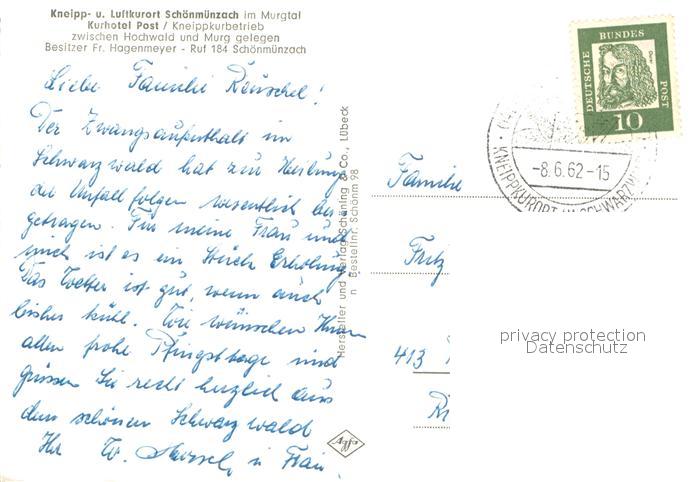 Kneipp- u. Luftkurort Schönmünzach im Murgtal
Kurhotel Post / Kneippkurbetrieb
zwischen Hochwald und Murg gelegen
Besitzer Fr. Hagenmeyer - Ruf 184 Schönmünzach
Liebe Familie Reuschel!
Der Zwangsaufenthalt im
Schwarzwald hat zur Heilung
der Unfallfolgen wesentlich bei-
getragen. Für meine Frau und
mich ist es ein Stück Erholung.
Das Wetter ist gut, wenn auch
bisher kühl. Wir wünschen Ihnen
allen frohe Pfingsttage und
grüssen Sie recht herzlich aus
dem schönen Schwarzwald
Ihr W. u. Frau.
Hersteller und Verlag Schöning & Co., Lübeck
n Bestellnr. Schönm 98
Agfa
DEUTSCHE BUNDES POST
Dürer
10
-8.6.62-15
KNEIPPKURORT IM SCHWARZW
Familie
Fritz
413
privacy protection
Datenschutz